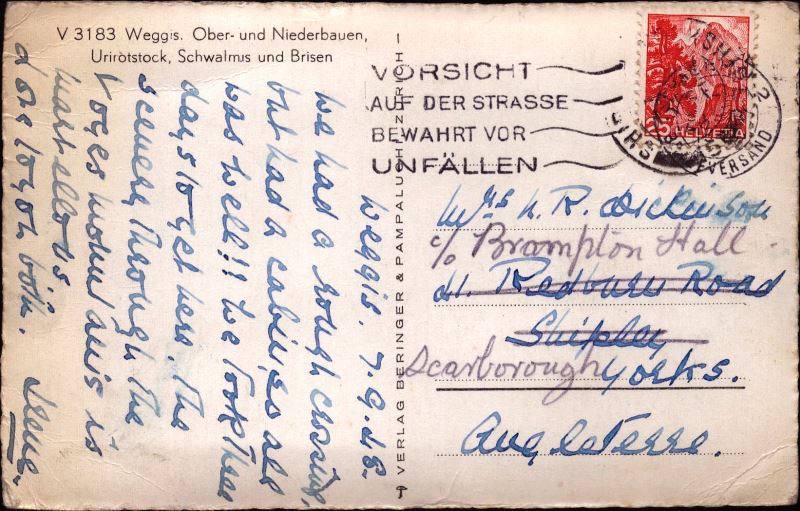 V 3183 Weggis. Ober- und Niederbauen,
Urirotstock, Schwalmus und Brisen
VORSICHT
AUF DER STRASSE
BEWAHRT VOR
UNFÄLLEN
HELVETIA
VERSAND
VERLAG BERINGER & PAMPALUCHI ZÜRICH
Weggis. 7.9.48
we had a rough crossing,
but had a cabin, so all
was well!! We took three
days to get here. The
scenery through the
Voges mountains is
marvellous
d one to you both.
Mrs N. R. Dickinson
c/o Brompton Hall
41. Redburn Road
Shipley
Scarborough Yorks.
Angleterre.